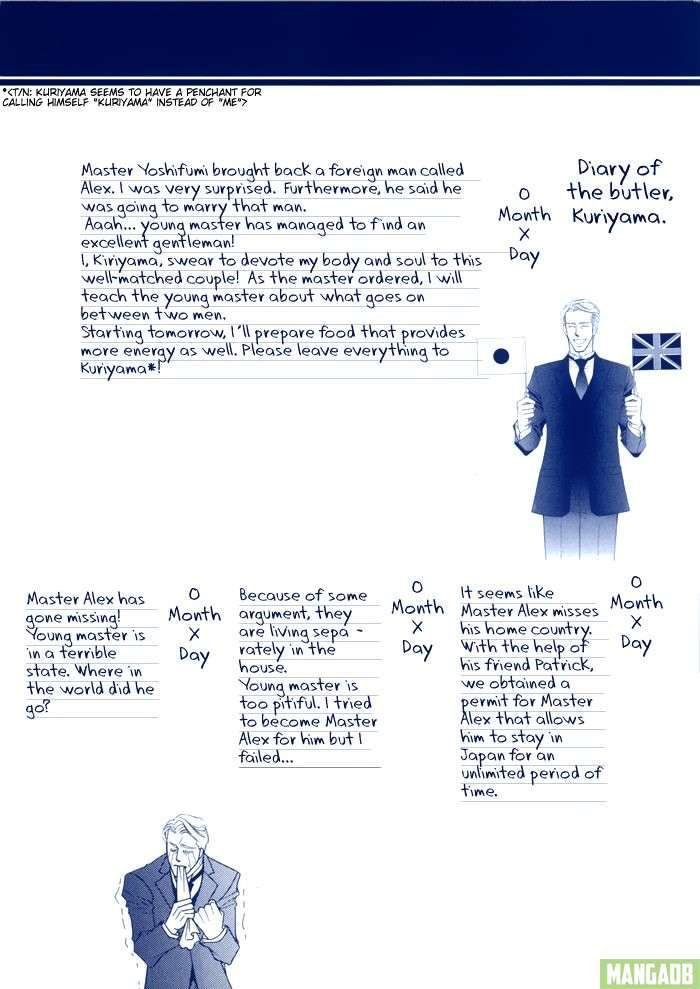 *<T/N: KURIYAMA SEEMS TO HAVE A PENCHANT FOR
CALLING HIMSELF "KURIYAMA" INSTEAD OF "ME">
Diary of
the butler,
Kuriyama.
O
Month
X
Day
Master Yoshifumi brought back a foreign man called
Alex. I was very surprised. Furthermore, he said he
was going to marry that man.
Aaah... young master has managed to find an
excellent gentleman!
I, Kiriyama, swear to devote my body and soul to this
well-matched couple! As the master ordered, I will
teach the young master about what goes on
between two men.
Starting tomorrow, I'll prepare food that provides
more energy as well. Please leave everything to
Kuriyama*!
O
Month
X
Day
It seems like
Master Alex misses
his home country.
With the help of
his friend Patrick,
we obtained a
permit for Master
Alex that allows
him to stay in
Japan for an
unlimited period of
time.
O
Month
X
Day
Because of some
argument, they
are living sepa -
rately in the
house.
Young master is
too pitiful. I tried
to become Master
Alex for him but I
failed...
O
Month
X
Day
Master Alex has
gone missing!
Young master is
in a terrible
state. Where in
the world did he
go?
MANGADB